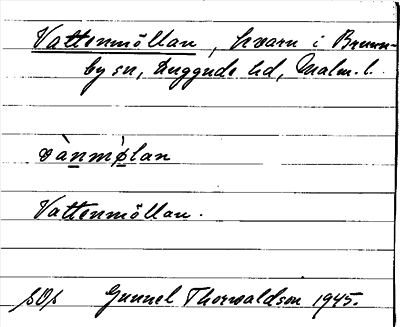 Vattenmöllan, kvarn i Brunn-
by sn, Luggude hd, Malm. l.
vànmø̀lan
Vattenmöllan.
sOs Gunnel Thorwaldson 1945.